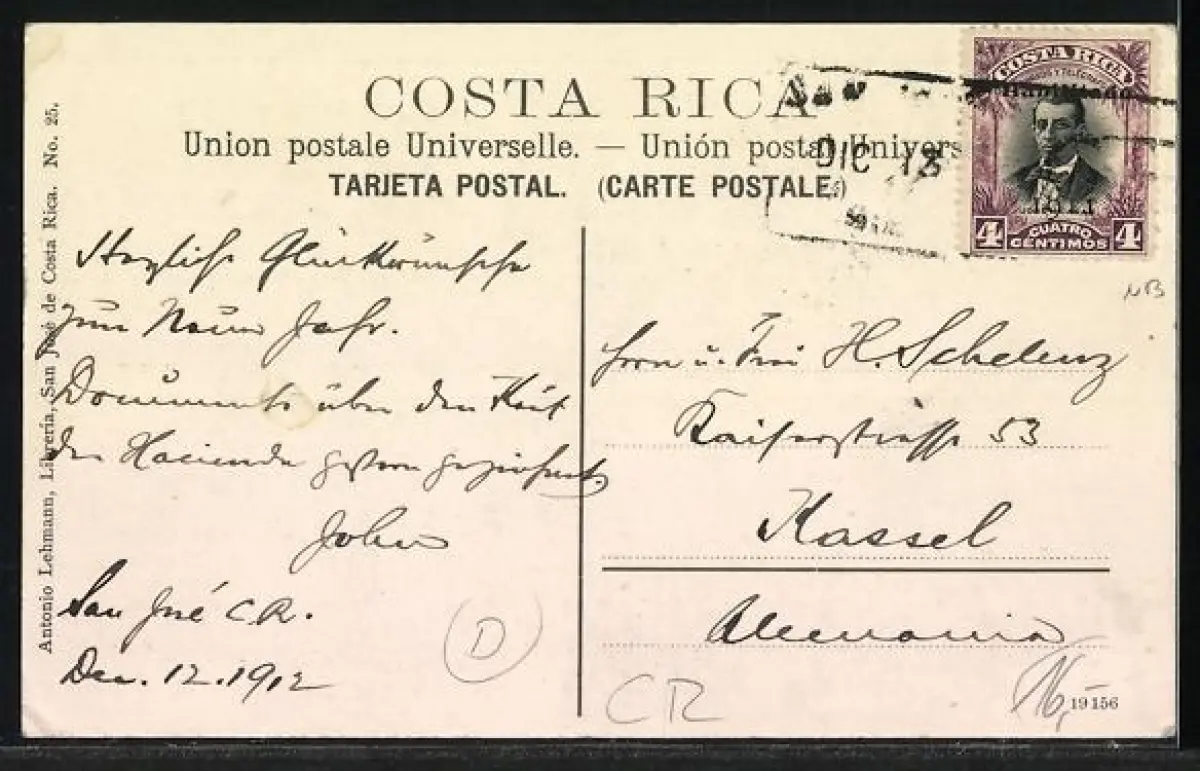 COSTA RICA
Union postale Universelle. — Unión postal Univers
TARJETA POSTAL. (CARTE POSTALE.)
COSTA RICA
Habilitado
1911
4 CUATRO CENTIMOS 4
DIC 13
NB
Antonio Lehmann, Librería, San José de Costa Rica. No. 25.
Herzliche Glückwünsche
zum Neuen Jahr.
Documente über den Kauf
der Hacienda gestern
John
San José C.R.
Dec. 12. 1912
Herrn u. Frau H. Schelenz
Kaiserstrasse 53
Kassel
Alemania
D
CR
16,-
19156